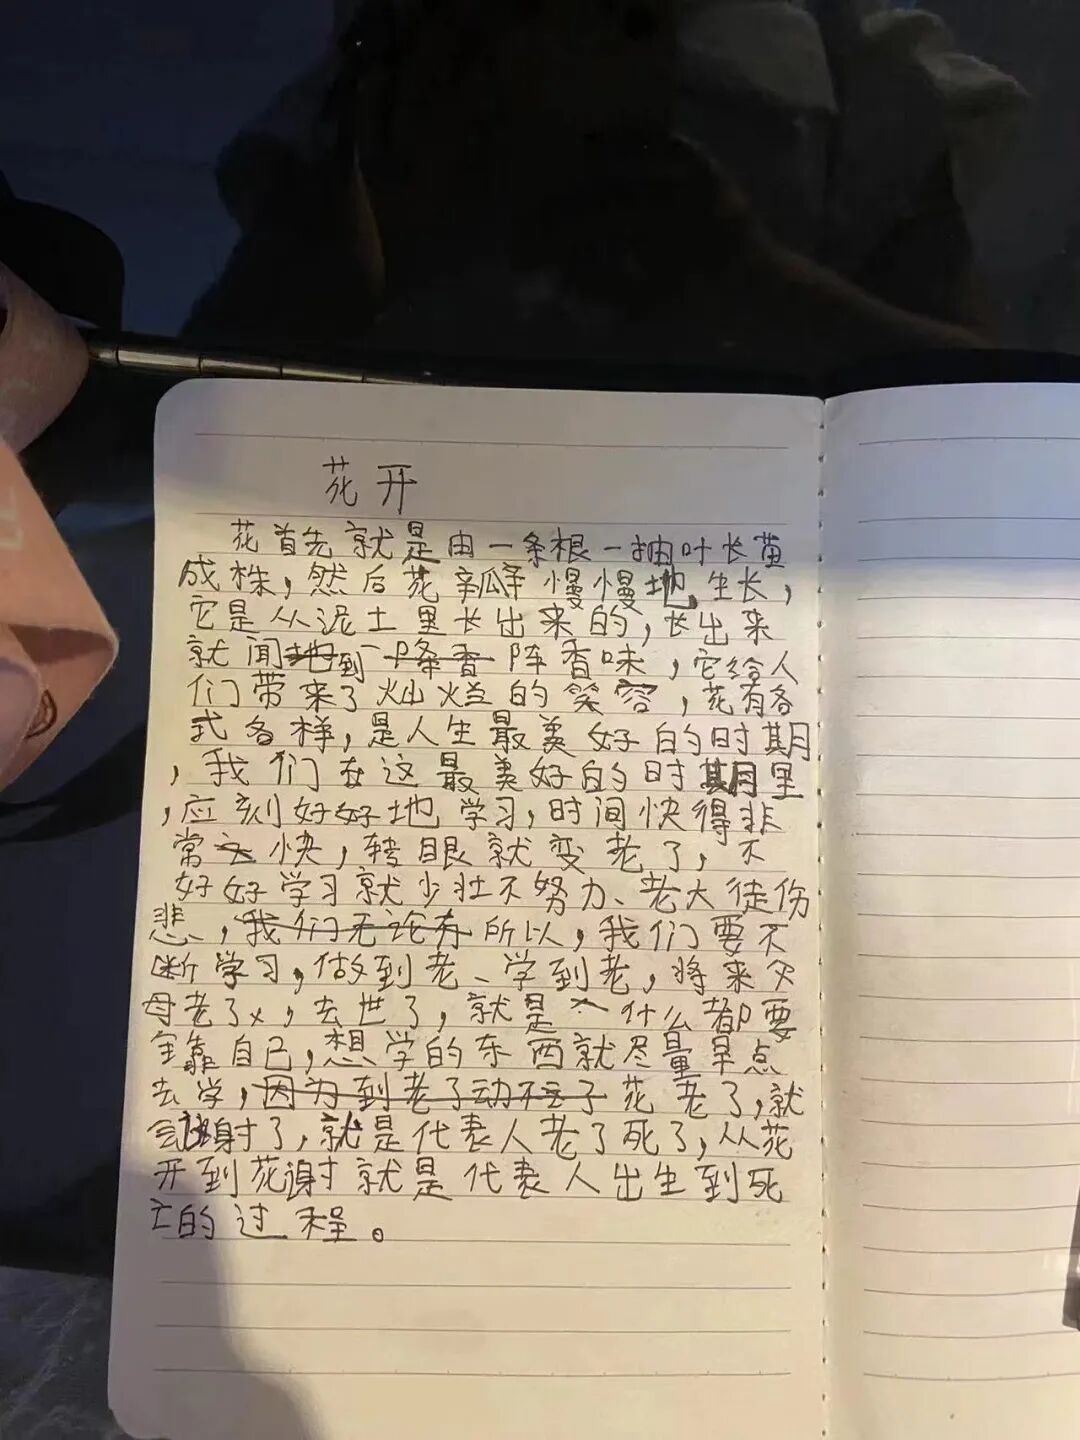 花开
花首先就是由一条根一抽叶长茧
成株，然后花瓣慢慢地生长，
它是从泥土里长出来的，长出来
就闻到一阵香味，它给人
们带来了灿烂的笑容，花有各
式各样，是人生最美好的时期
，我们在这最美好的时期里
，应刻好好地学习，时间快得非
常快，转眼就变老了，不
好好学习就少壮不努力、老大徒伤
悲，我们无论有所以，我们要不
断学习，做到老、学到老，将来父
母老了，去世了，就是什么都要
全靠自己，想学的东西就尽量早点
去学，因为到老了动不了 花老了，就
会谢了，就是代表人老了死了，从花
开到花谢就是代表人出生到死
亡的过程。